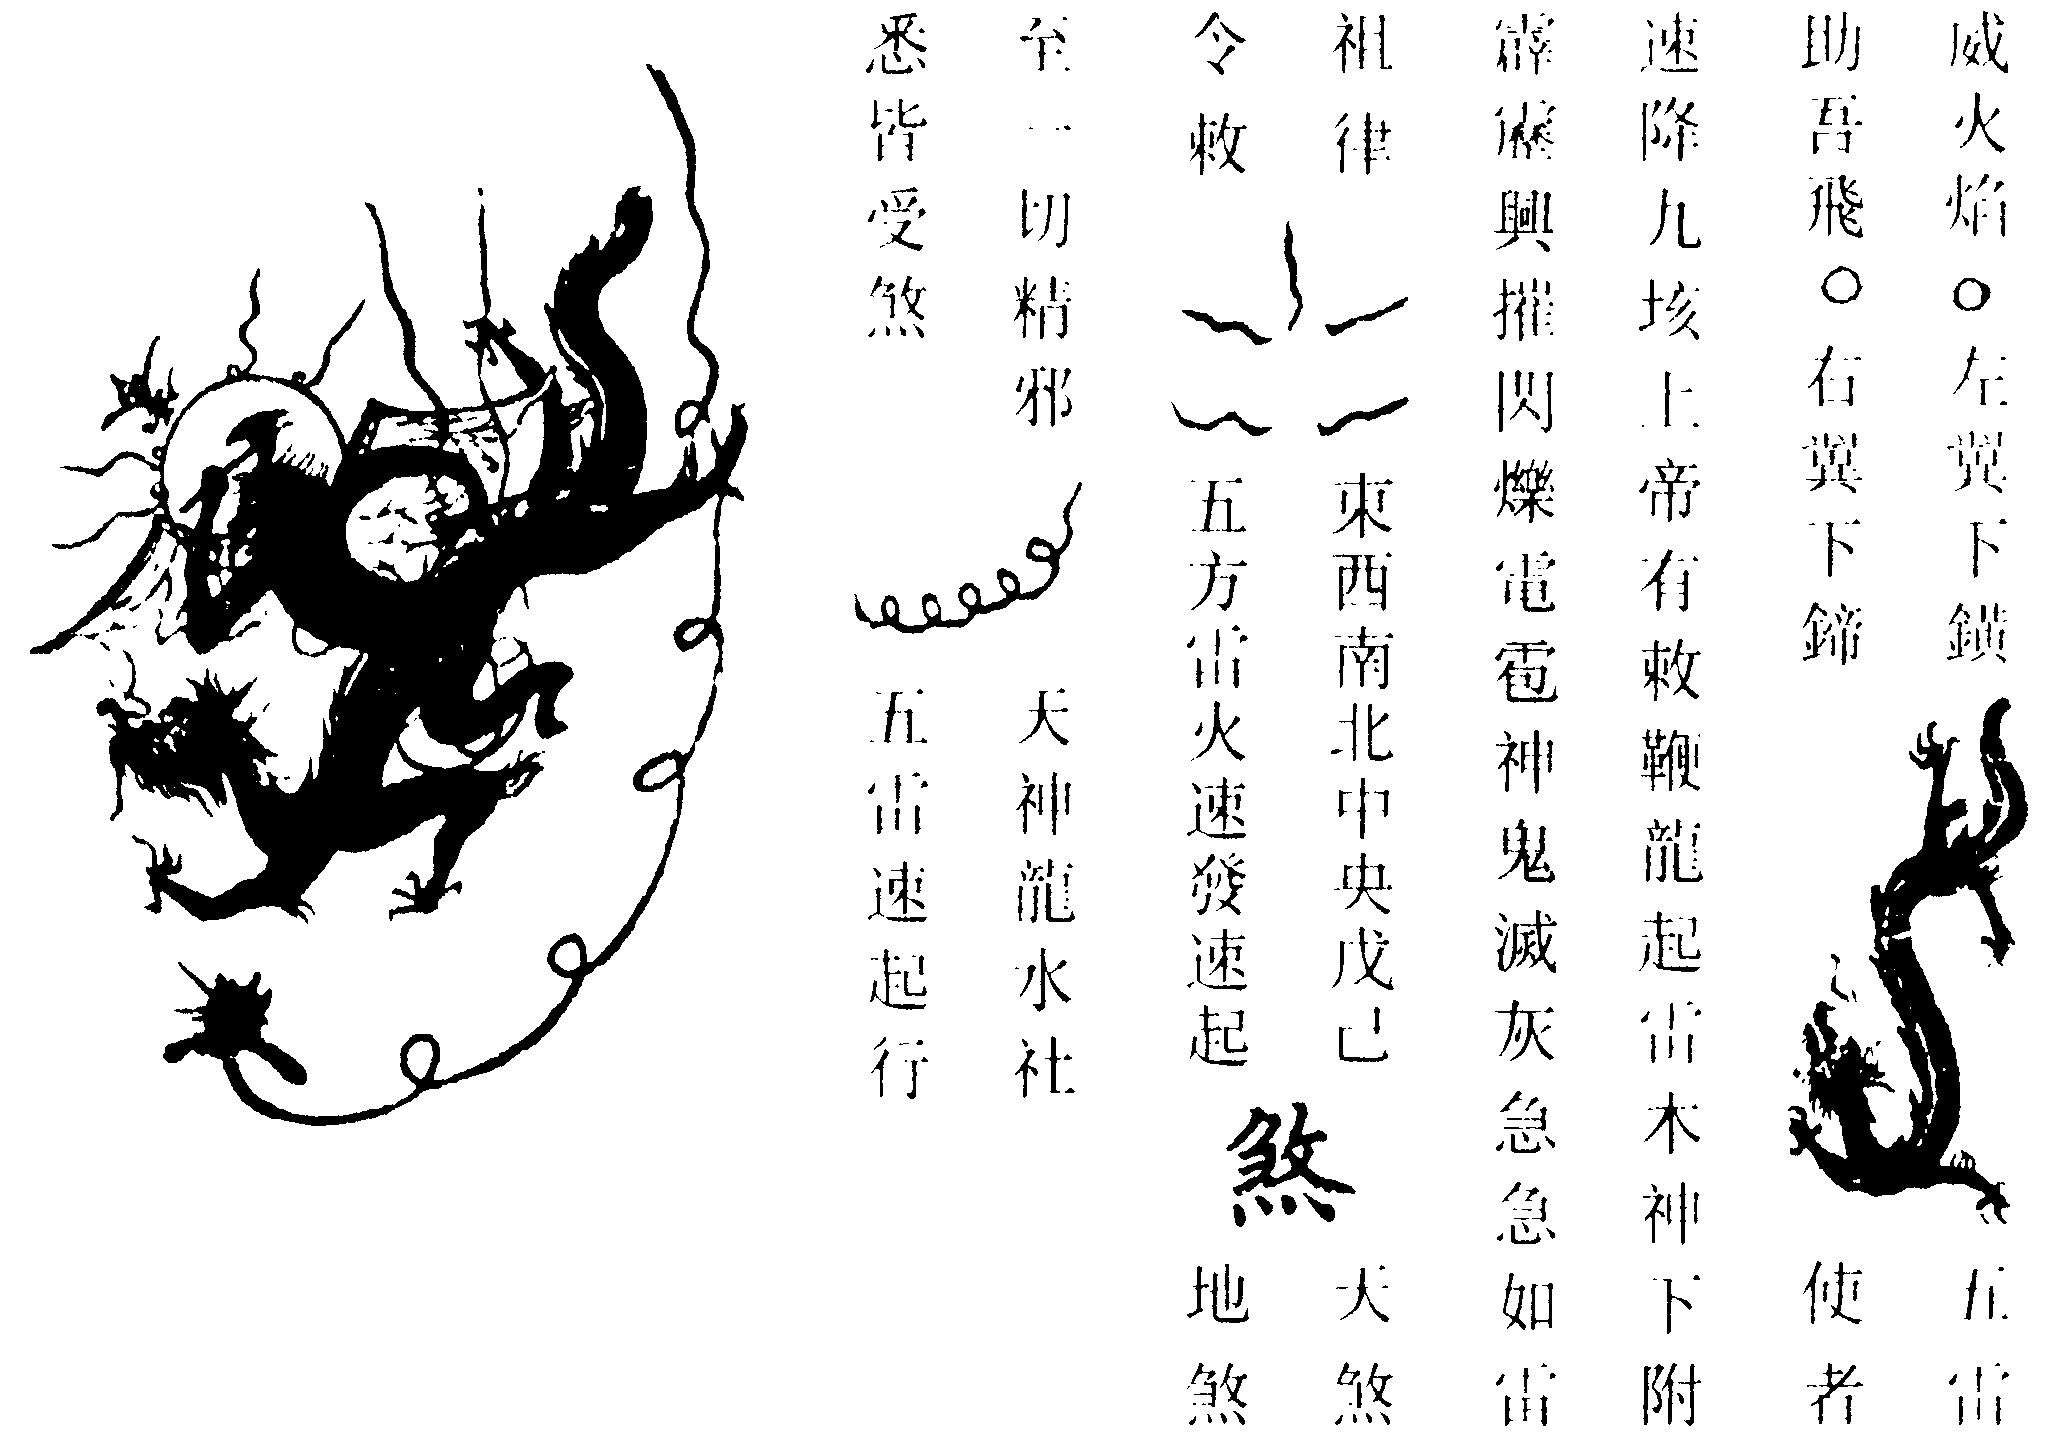 威火焰○左翼下鐄
五雷
助吾飛○右翼下鍗
使者
速降九垓上帝有敕鞭龍起雷木神下附
霹靂興摧閃爍電雹神鬼滅灰急急如雷
祖律
令敕
東西南北中央戊己
五方雷火速發速起
煞
天煞
地煞
至一切精邪
悉皆受煞
天神龍水社
五雷速起行